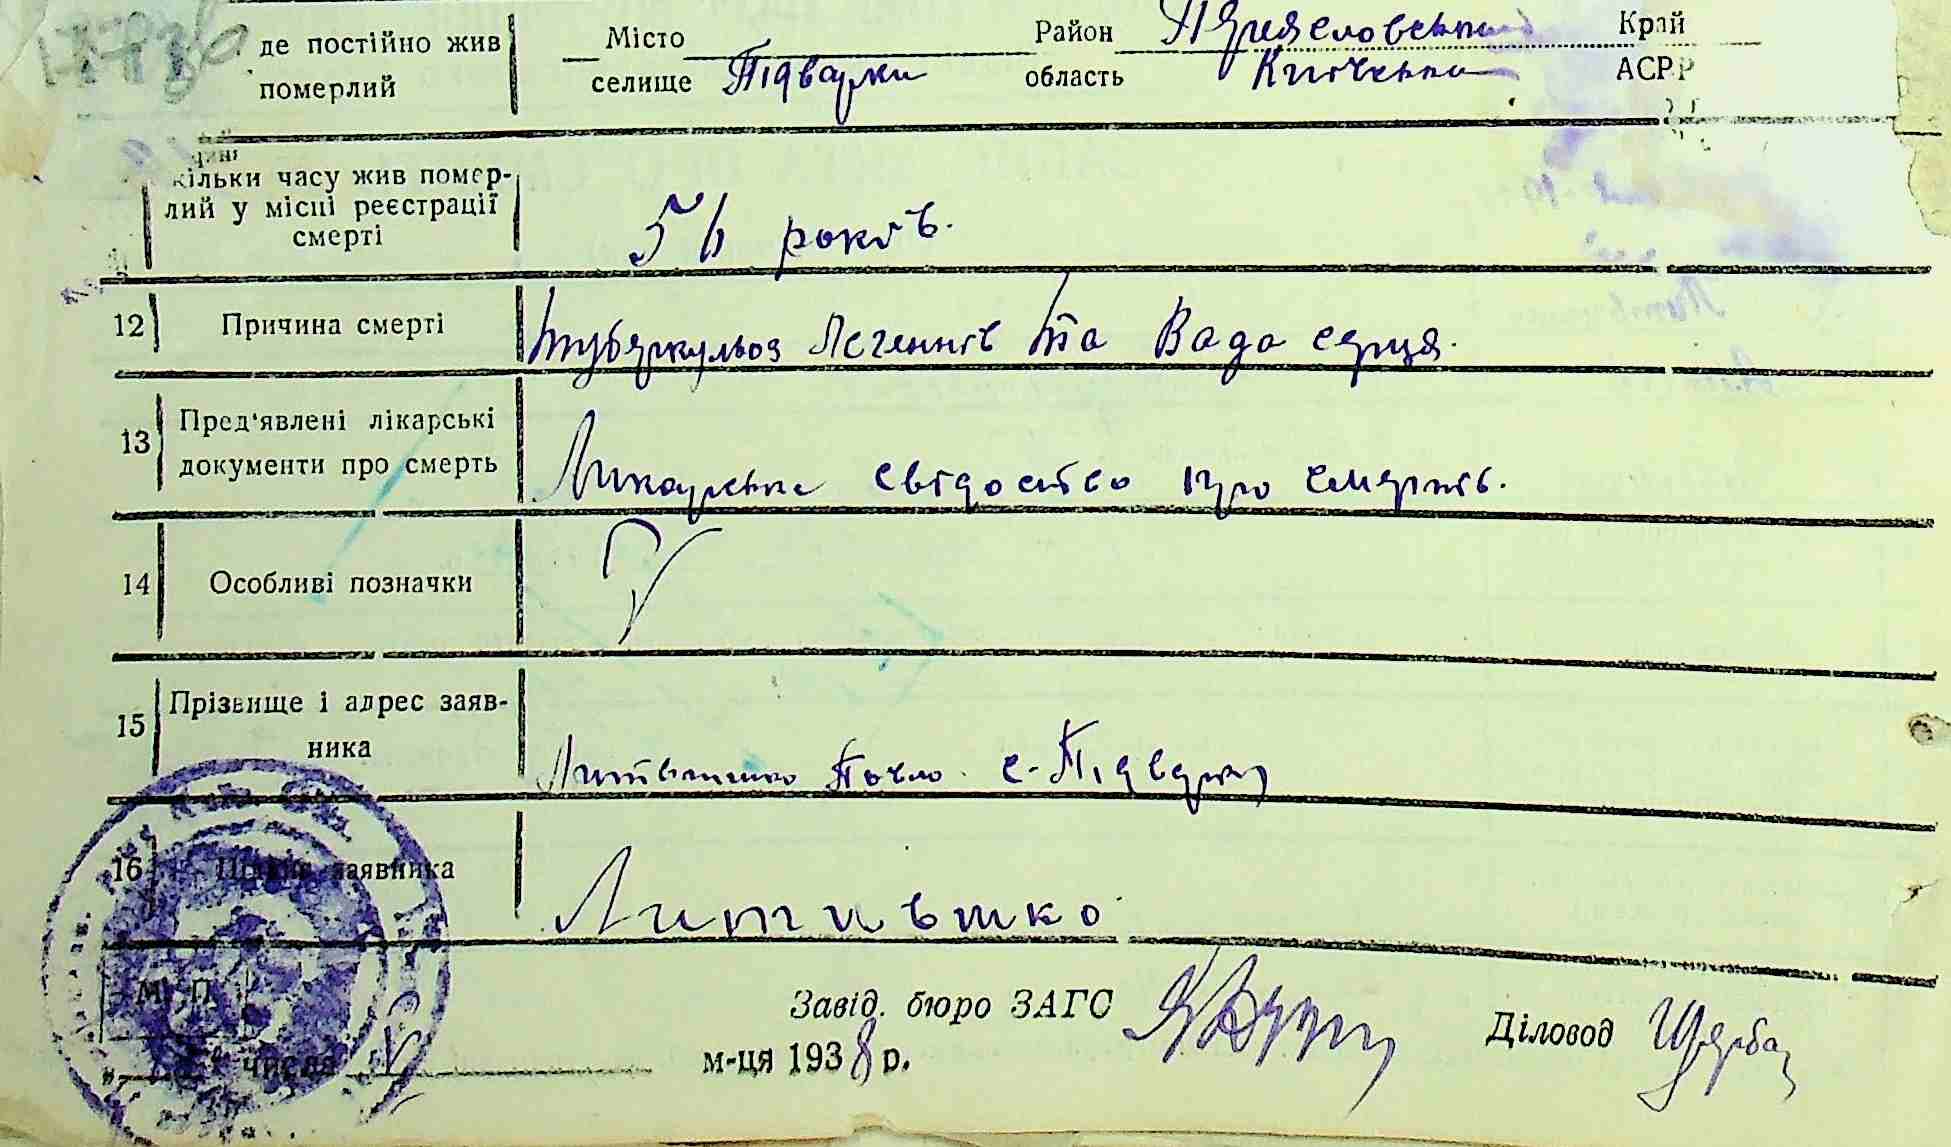 де постійно жив померлий
Місто Район Переяславський Край
селище Підварки область Київська АСРР
кільки часу жив помер-
лий у місці реєстрації
смерті
56 років.
12 Причина смерті
туберкульоз легеннів та Вада серця.
13 Пред'явлені лікарські
документи про смерть
Ликарське свідоство про смерть.
14 Особливі позначки
15 Прізвище і адрес заяв-
ника
с. Підварки
16 заявника
Литвинко
М. П.
Завід. бюро ЗАГС
Діловод Щерба
числа м-ця 1938 р.